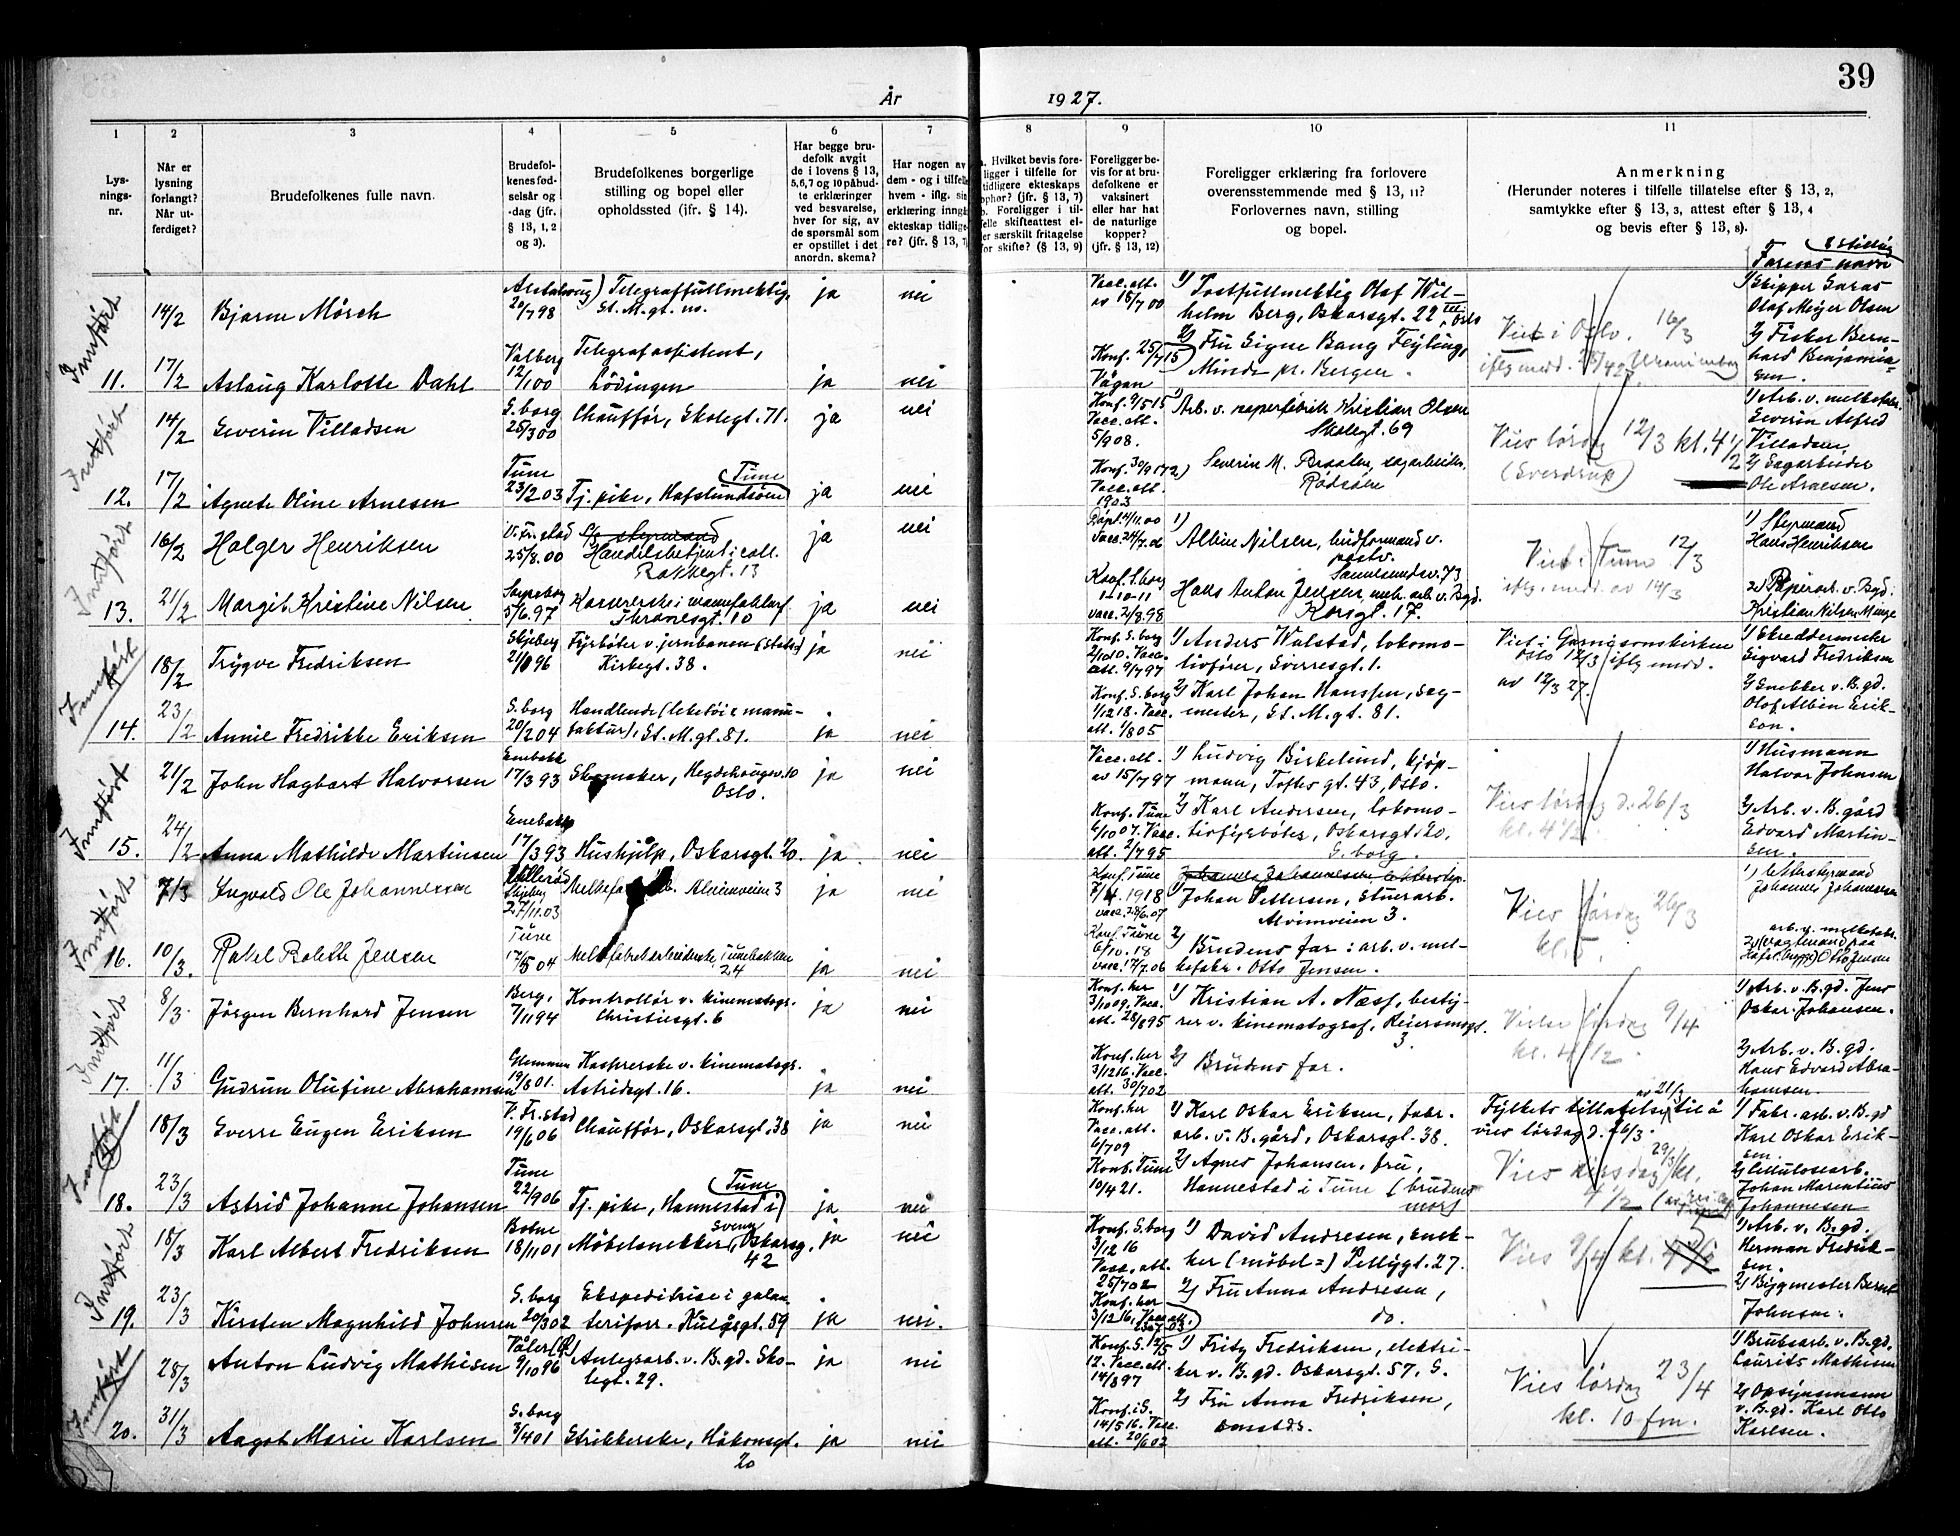 39
År 1927.
1 2 3 4 5 6 7 8 9 10 11
Lys-
nings-
nr.
Når er
lysning
forlangt?
Når ut-
ferdiget?
Brudefolkenes fulle navn.
Brudefol-
kenes fød-
selsår og
-dag (jfr.
§ 13, 1, 2
og 3).
Brudefolkenes borgerlige
stilling og bopel eller
opholdssted (ifr. § 14).
Har begge bru-
defolk avgit
de i lovens § 13,
5,6,7 og 10 påbud-
te erklæringer
ved besvarelse,
hver for sig, av
de spørsmål som
er opstillet i det
anordn. skema?
Har nogen av
dem - og i tilfelle
hvem - iflg. sin
erklæring inngå
ekteskap tidlige-
re? (jfr. § 13, 7
a. Hvilket bevis fore-
ligger i tilfelle for
tidligere ekteskaps
ophør? (jfr. § 13, 7)
b. Foreligger i til-
felle skifteattest el-
ler særskilt fritagelse
for skifte? (§ 13, 9)
Foreligger be-
vis for at bru-
defolkene er
vaksinert
eller har hat
de naturlige
kopper?
(jfr. § 13, 12)
Foreligger erklæring fra forlovere
overensstemmende med § 13, 11?
Forlovernes navn, stilling
og bopel.
Anmerkning
(Herunder noteres i tilfelle tillatelse efter § 13, 2,
samtykke efter § 13, 3, attest efter § 13, 4
og bevis efter § 13, 8).
Farens navn
& stilling
Innført 14/2 Bjarne Mörch 20/7 98 Telegraffullmektig, St. M. gt. no. ja nei Vacc. att. av 15/7 00 1) Postfullmektig Olaf Wil-
helm Berg, Oskarsgt. 22 III, Oslo Viet i Oslo. 16/3 1) Skipper
Olaf Meyer Olsen
11. 17/2 Aslaug Karlotte Dahl Valberg 12/1 00 Telegrafassistent,
Lödingen ja nei Konf. 25/7 15 Vågan 2) Fru Signe Bang Fejling,
Minde pr. Bergen. iflg. medd. 2) Fisker Bern-
hard Benjamin-
sen.
Innført 14/2 Severin Villadsen S. borg 25/3 00 Chauffør, Skolegt. 71. ja nei Konf. 9/5 15 Vacc. att. 5/9 08. 1) Arb. v. papirfabrik Kristian Olsen
Skolegt. 69 Vies lørdag 12/3 kl. 4 1/2
(Sverdrup) 1) Arb. v. melkefabr.
Severin Alfred
Villadsen,
12. 17/2 Agnete Oline Arnesen Tune 23/2 03 Tj. pike, Hafslundsöen Tune ja nei Vacc. att. 1903 2) Severin M. Braaten, sagarbeider,
Rödsöen 2) Sagarbeider
Ole Arnesen.
Innført 16/2 Holger Henriksen V. Fr. stad 25/8. 00 Handelsbetjent i coll.
Rakkegt. 13 ja nei Döpt 4/11. 00 vacc. 24/7. 06 1) Albin Nilsen, budformand v.
postv.
Sannesundsv. 73 Viet i Tune 12/3
iflg. medd. av 14/3 1) Styrmand
Hans Henriksen
13. 21/2 Margit Kristine Nilsen Sarpsborg 5/6. 97 Kassererske i
Thranesgt. 10 ja nei Konf. S. borg 1-10-11 vacc. 2/8. 98 Hans Anton Jensen, mek. arb. v. Bgd.
Korsgt. 17. 2) Papirarb. v. Bgd:
Kristian Nilsen
Innført 18/2 Trygve Fredriksen Skjeberg 96 Fyrböter v. jernbanen (Stats)
Kirkegt. 38. ja nei Konf. S. borg 2/10 10. Vacc. att. 9/7 97 1) Anders Walstad, lokomo-
tivfører, Sverresgt. 1. Viet i Garnisonskirken
Oslo 12/3 iflg. medd.
av 12/3 27. 1) Skreddermester
Sigvard Fredriksen
14. 23/2 Annie Fredrikke Eriksen S. borg 20/2 04 Handlende (leketöi & manu-
faktur), St. M. gt. 81. ja nei Konf. S. borg 1/12 18. Vacc. att. 1/8 05 2) Karl Johan Hanssen, sag-
mester, St. M. gt. 81. 2) Snekker v. B. gd.
Olaf Albin Erik-
sen.
Innført 21/2 John Hagbart Halvorsen Enebakk 17/3 93 Skomaker, Hegdehaugsv. 10
Oslo. ja nei Vacc. att. av 15/7 97 1) Ludvig Birkelund, kjøp-
mann, Toftes gt. 43, Oslo. Vies lørdag d. 26/3
kl. 4 1/2. 1) Husmann
Halvor Johnsen
15. 24/2 Anna Mathilde Martinsen Enebakk 17/3 93 Hushjelp, Oskarsgt. 20. ja. nei Konf. Tune 6/10 07. Vacc. att. 2/7 95 2) Karl Andersen, lokomo-
tivfyrböter, Oskarsgt. 20,
S. borg. 2) Arb. v. B. gård
Edvard Martin-
sen.
Innført 7/3 Yngvald Ole Johannessen Skjeberg 27/11. 03 Alvimveien 3 ja nei Konf. Tune 1918 vacc. 28/6. 07 Johannes Johannesen
1) Johan Pettersen, stuerarb.
Alvimveien 3. Vies lørdag 26/3
kl. 5. 1) letterstyrmand
Johannes Johannesen
16. 10/3. Rakel Bolette Jensen Tune 04 Melkefabrikarbeiderske, Tunebakken
24 ja nei Konf. Tune 6/10. 18 vacc. 17/7. 06 2) Brudens far: arb. v. mel-
kefabr. Otto Jensen. arb. v. melkefabr.
Otto Jensen
Innført 8/3. Jörgen Bernhard Jensen Berg, 7/11 94 Kontrollör v. kinematogr.
Christiesgt. 6 ja nei Konf. her 3/10 09. Vacc. att. 28/8 95 1) Kristian A. Næss, besty-
rer v. kinematograf, Reiersmogt.
3. Vies lørdag 9/4
kl. 4 1/2. 1) Arb. v. B. gd. Jens
Oskar Johansen.
17. 11/3 Gudrun Olufine Abrahamsen Glemmen 19/8 01. Kassererske v. kinematogr.
Astridsgt. 16. ja nei Konf. her 3/12 16. Vacc. att. 30/7 02 2) Brudens far. 2) Arb. v. B. gd.
Hans Edvard Abra-
hamsen.
Innført 18/3 Sverre Eugen Eriksen V. Fr. stad 19/6 06 Chauffør, Oskarsgt. 38 ja nei Konf. her Vacc. att. 6/7 09 1) Karl Oskar Eriksen, fabr.
arb. v. B. gård, Oskarsgt. 38. Fylkets tillatelse av 21/3 til å
vies lørdag d. 26/3. 1) Fabr. arb. v. B. gd
Karl Oskar Erik-
sen.
18. 23/3 Astrid Johanne Johansen Tune 22/9 06 Tj. pike, Hannestad i Tune ja nei Konf. Tune 10/4 21. 2) Agnes Johansen, fru,
Hannestad i Tune (brudens
mor) Vies tirsdag 29/3 kl. 2) Cellulosearb.
Johan Marentius
Johannesen
Innført 18/3 Karl Albert Fredriksen Botne 18/11 01 Møbelsnekkersvenn, Oskarsg.
42 ja nei Konf. S. borg 3/12 16 Vacc. att. 25/7 02 1) David Andresen, snek-
ker (møbel=) Pellygt. 27. Vies 9/4 kl. 5 1) Arb. v. B. gd.
Herman Fredrik-
sen.
19. 23/3 Kirsten Magnhild Johnsen S. borg 20/3 02 Ekspeditrise i galan-
teriforr. Kulåsgt. 59 ja nei. Konf. her 3/12 16. Vacc. att. 2) Fru Anna Andresen,
do. 2) Bygmester Bernt
Johnsen.
Innført 28/3 Anton Ludvig Mathisen Våler (Ø) 9/10 96 Anlegsarb. v. B. gd. Sko-
legt. 29. ja nei Konf. S. 12/5 12. Vacc. att. 14/8 97 1) Fritz Fredriksen, elektri-
ker v. B. gd. Oskarsgt. 57, S. Vies lørdag 23/4
kl. 10 fm. 1) Brubsarb. v. B. gd.
Laurits Mathisen
20. 31/3 Aagot Marie Karlsen S. borg 3/4 01 Strikkerske, Håkonsgt.
20 ja nei Konf. i S. 14/5 16. Vacc. att. 20/6 02 2) Fru Anna Fredriksen,
samstds. 2) Opsynsmann
v. B. gd. Karl Otto
Karlsen.